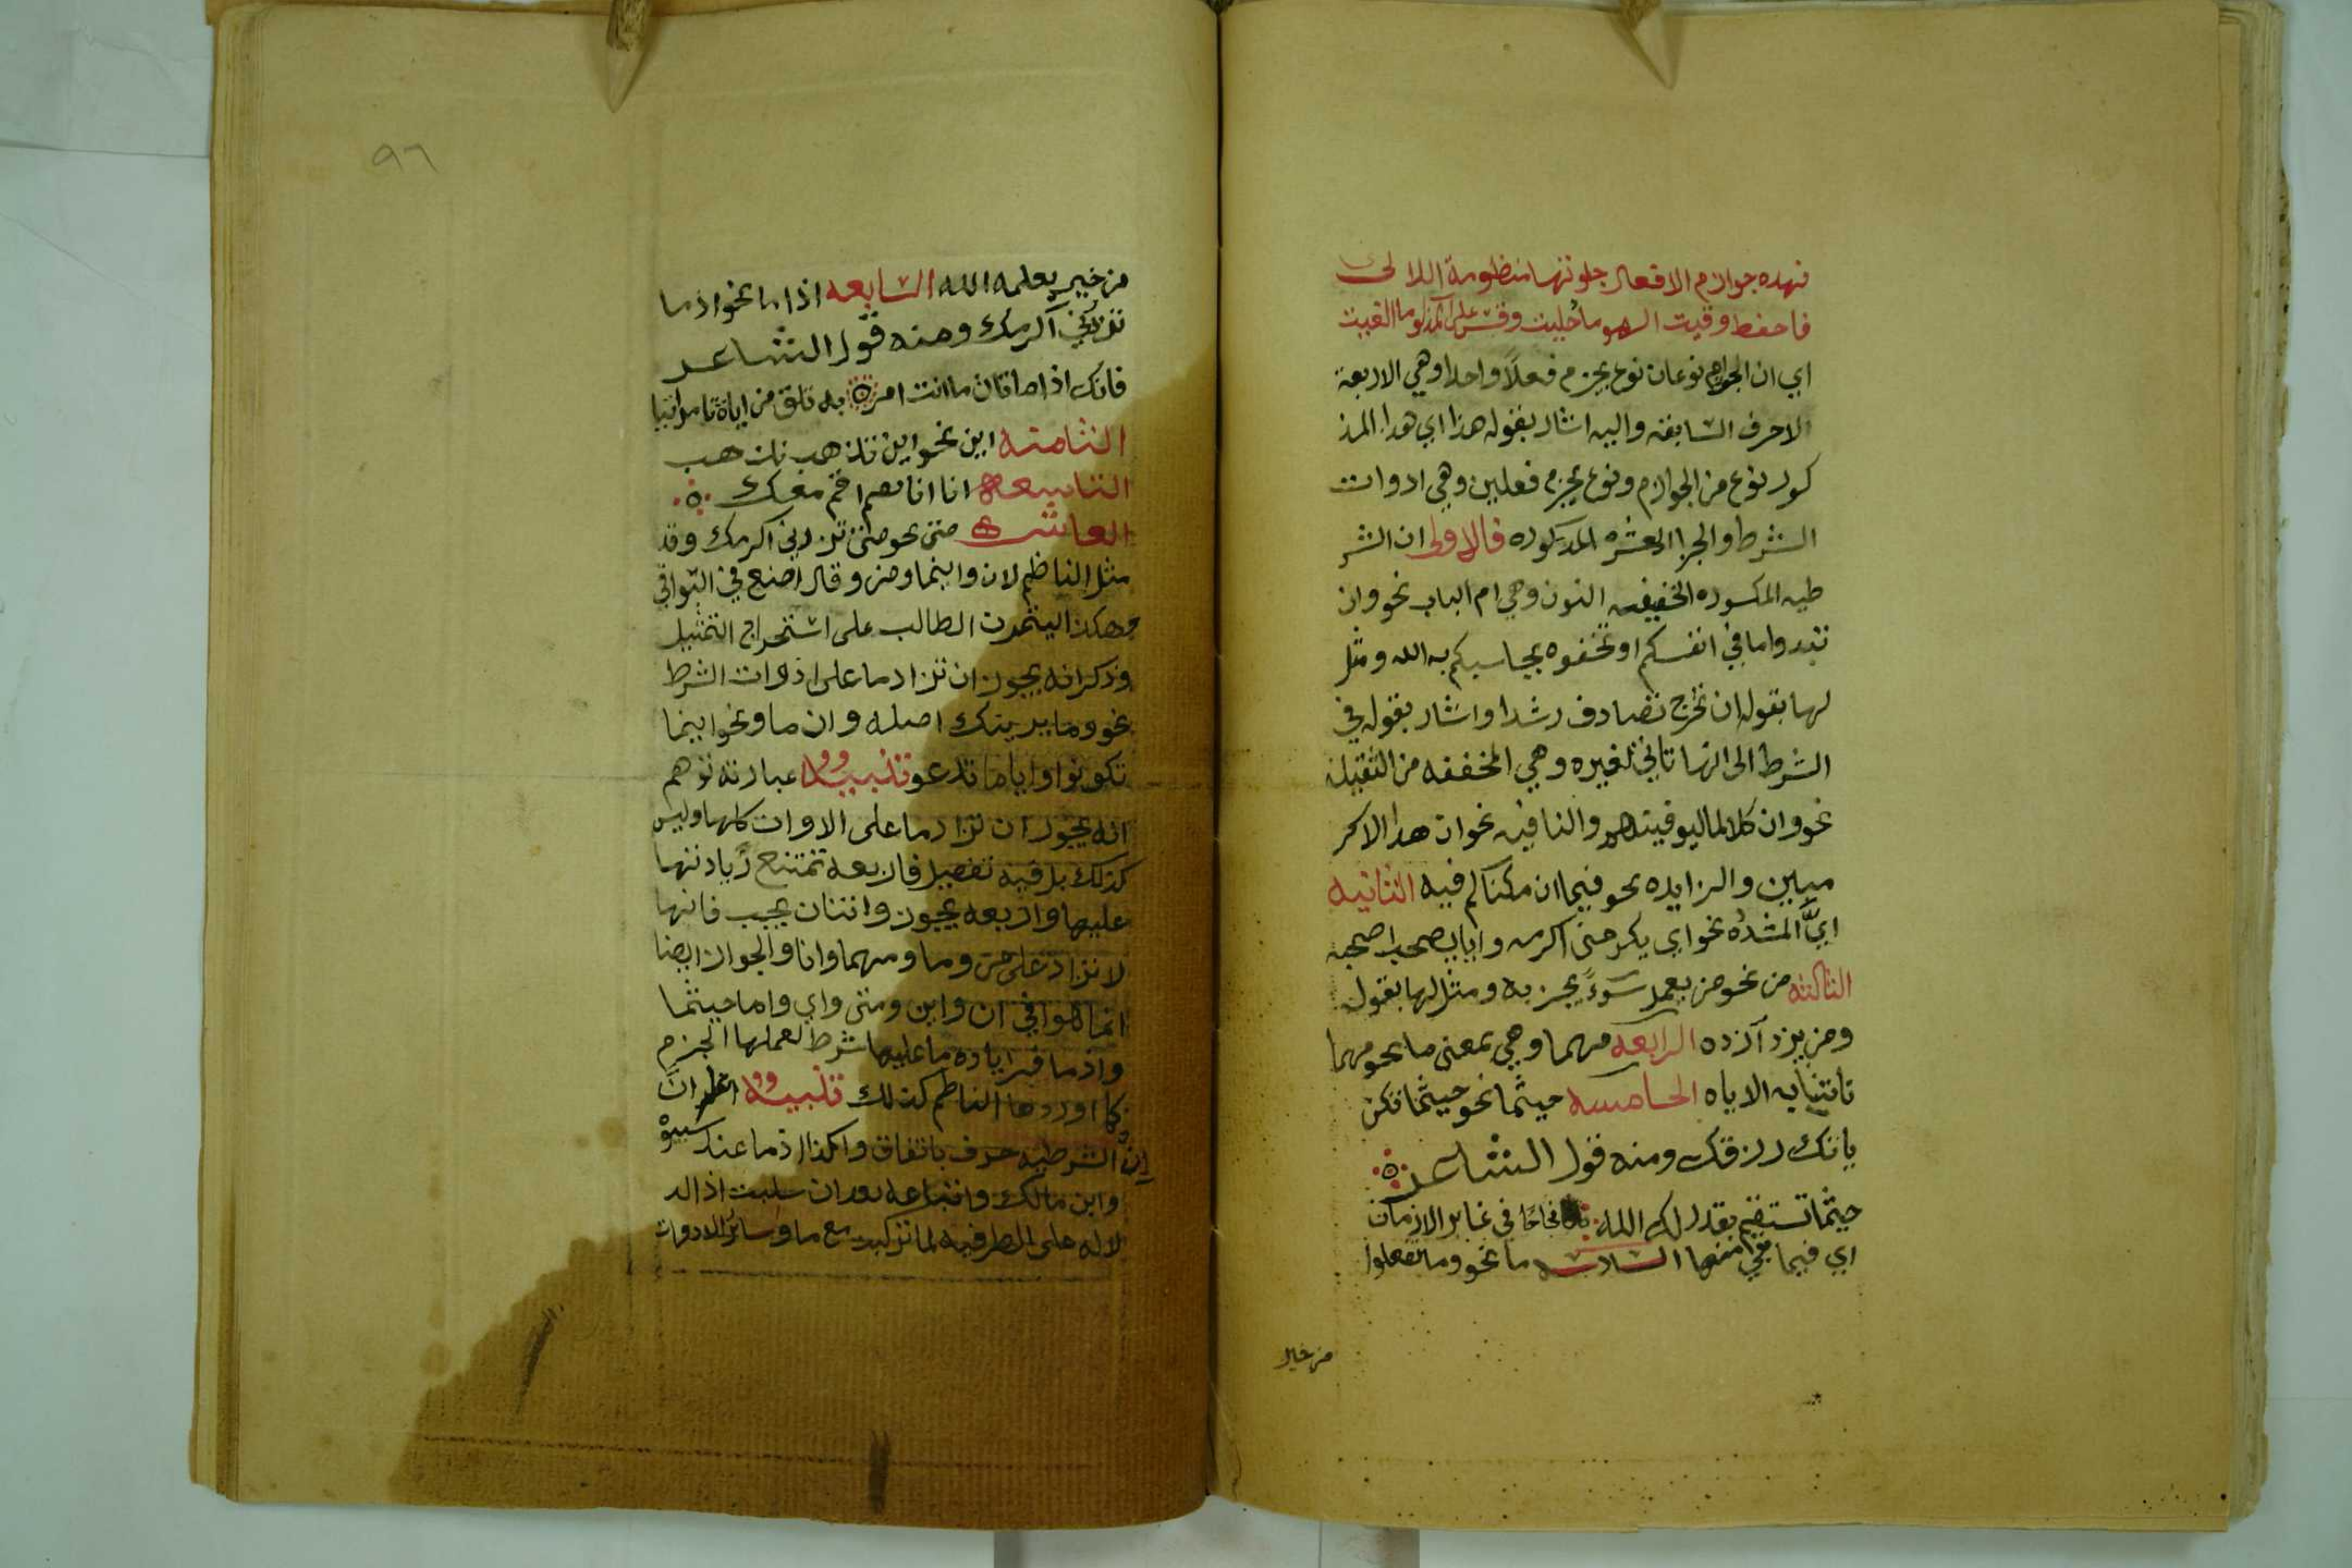 فهده جوازم الافعال جلوتها منظومة اللالى
فاحفظ وقيت السهو ما امليت وقس على المذكور ما القيت
اي ان الجوازم نوعان نوع يجزم فعلاً واحدا وهي الاربعة
الاحرف السابقه واليه اشار بقوله هذا اي هدا المذ
كور نوع من الجوازم ونوع يجزم فعلين وهي ادوات
الشرط والجزا العشره المدكوره فالاولى ان الشر
طيه المكسوره الخفيفه النون وهي ام الباب نحو وان
تبدوا ما في انفسكم او تخفوه يحاسبكم به الله ومثل
لها بقوله ان تخرج تصادف رشدا واشار بقوله في
الشرط الى انها تاتي لغيره وهي المخففه من الثقيله
نحو وان كلا لما ليوفينهم والنافيه نحو ان هدا الا كر
مبين والزايده نحو فيما ان مكناكم فيه الثانيه
ايَّ المشدده نحو اي يكرمني اكرمه وايا يصحب اصحبه
الثالثه من نحو من يعمل سوءً يجز به ومثل لها بقوله
ومن يزد أزده الرابعه مهما وهي بمعنى ما نحو مهما
تاتنا به الايه الخامسه حيثما نحو حيثما تكن
ياتك رزقك ومنه قول الشاعر
حيثما تستقم يقدر لك الله نجاحًا في غابر الازمان
اي فيما بقي منها السادسه ما نحو وما تفعلوا
من خير
٩٦
من خير يعلمه الله السابعه اذ ما نحو اذ ما
تزرني أكرمك ومنه قول الشاعر
فانك اذ ما تات ما انت امر به تلق من اياه تامر اتيا
الثامنه اين نحو اين تذهب نذهب
التاسعه انا انا تقم اقم معك
العاشره متى نحو متى تزرني اكرمك وقد
مثل الناظم لان واينما ومن وقال اصنع في البواقي
هكذا ليتمرن الطالب على استخراج التمثيل
وذكر انه يجوز ان تزاد ما على ادوات الشرط
نحو وما يرينك اصله وان ما ونحو اينما
تكونوا وايا ما تدعو تنبيه عبارته توهم
انه يجوز ان تزاد ما على الادوات كلها وليس
كذلك بل فيه تفصيل فاربعه تمتنع زيادتها
عليها واربعه يجوز واثنان يجب فانها
لا تزاد على من وما ومهما وانا والجواز ايضا
انما هو في ان واين ومتى واي واما حيثما
واذ ما فزياده ما عليها شرط لعملها الجزم
كما اوردها الناظم كذلك تنبيه اعلم انَّ
إن الشرطيه حرف باتفاق وكذا اذ ما عند سيبوه
وابن مالك واتباعه بعد ان سلبت اذ الد
لاله على الظرفيه لما تركبت مع ما وسائر الادوات